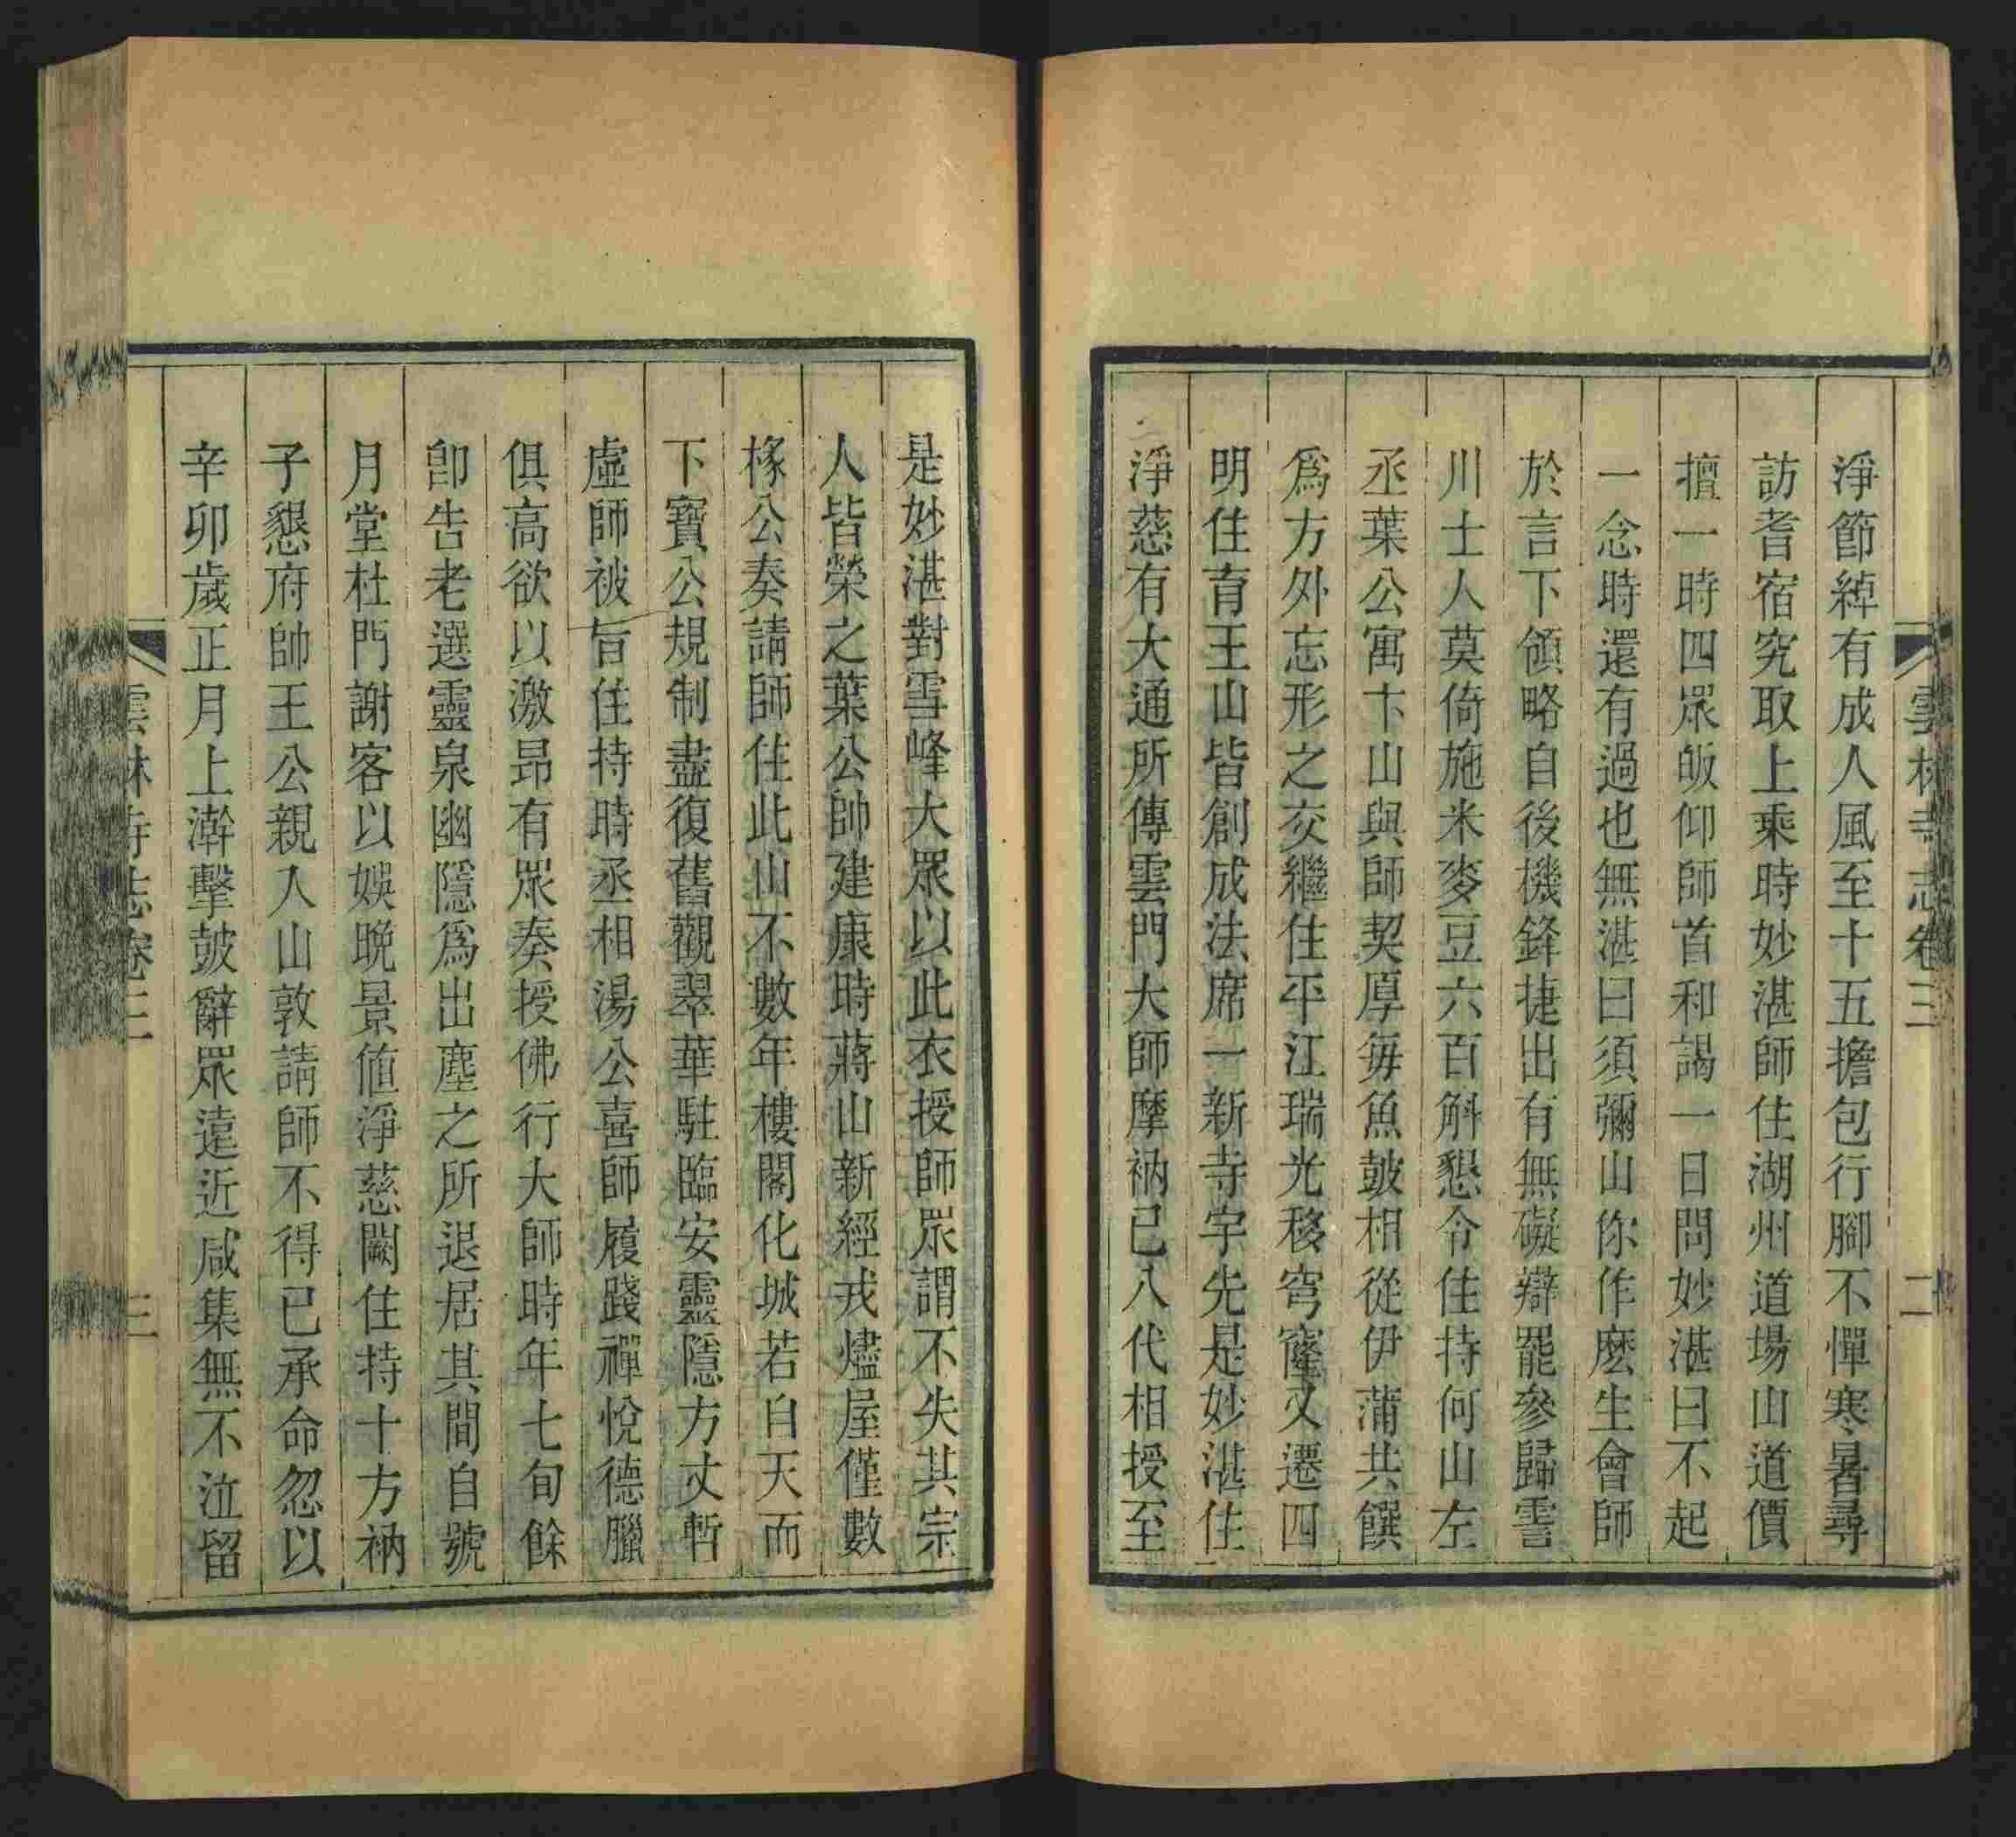 雲林寺志卷三
二
淨節綽有成人風至十五擔包行腳不憚寒暑尋
訪耆宿究取上乘時妙湛師住湖州道場山道價
擅一時四眾皈仰師首和謁一日問妙湛曰不起
一念時還有過也無湛曰須彌山你作麽生會師
於言下領略自後機鋒捷出有無礙辯罷參歸霅
川士人莫倚施米麥豆六百斛懇令住持何山左
丞葉公寓卞山與師契厚每魚鼓相從伊蒲共饌
爲方外忘形之交繼住平江瑞光移穹窿又遷四
明住育王山皆創成法席一新寺宇先是妙湛住
淨慈有大通所傳雲門大師摩衲已八代相授至
是妙湛對雪峰大眾以此衣授師眾謂不失其宗
人皆榮之葉公帥建康時蔣山新經戎燼屋僅數
椽公奏請師住此山不數年樓閣化城若自天而
下寶公規制盡復舊觀翠華駐臨安靈隱方丈暫
虛師被旨住持時丞相湯公喜師履踐禪悅德臘
俱高欲以激昂有眾奏授佛行大師時年七旬餘
卽告老選靈泉幽隱爲出塵之所退居其間自號
月堂杜門謝客以娛晩景値淨慈闕住持十方衲
子懇府帥王公親入山敦請師不得已承命忽以
辛卯歲正月上澣擊鼓辭眾遠近咸集無不泣留
雲林寺志卷三
三